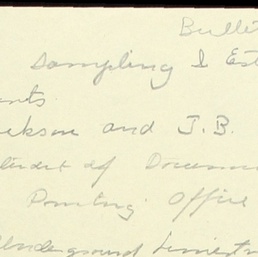 Bullet
Sampling & Est
ants
ickson and J.B.
tendent of Docum
Printing Office
Underground Limest